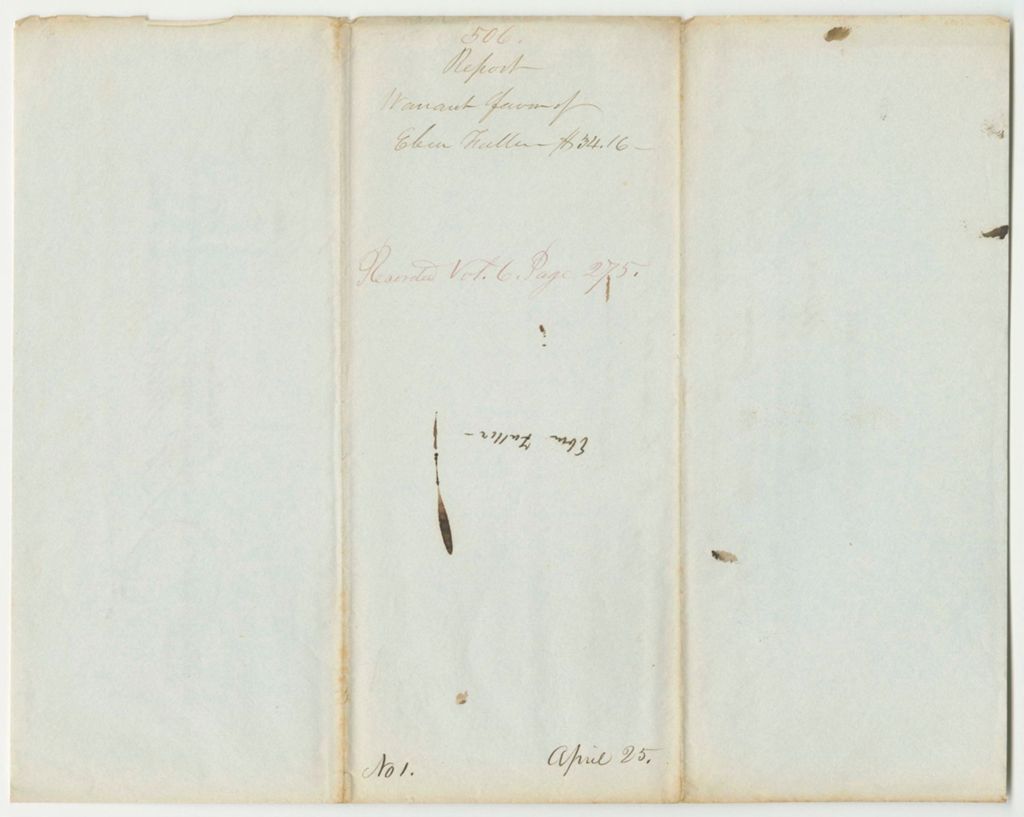 506.
Report
Warrant favor of
Eben Fuller $34.16 —
Recorded Vol. 6. Page 275.
Eben Fuller —
No 1.
April 25.